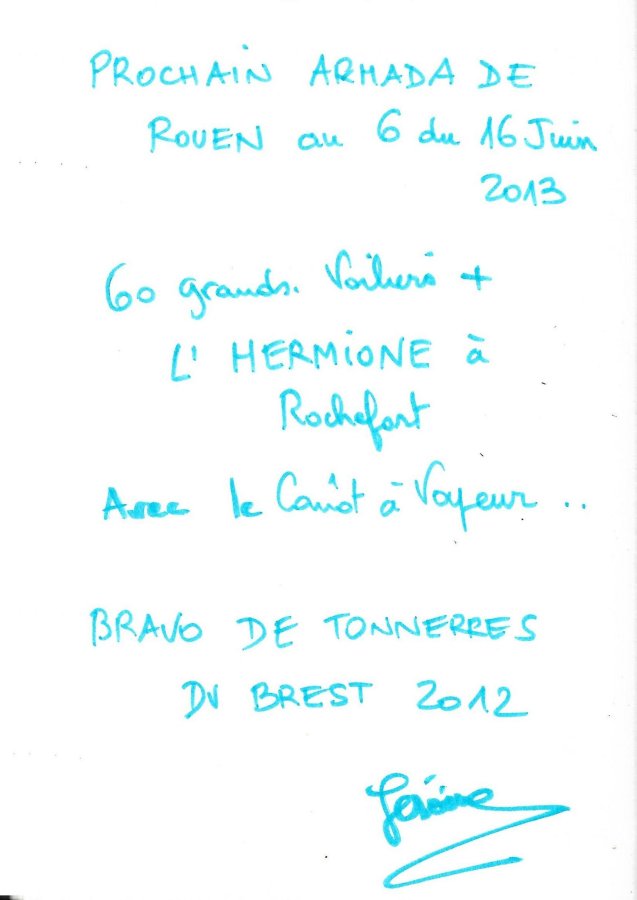 PROCHAIN ARMADA DE
ROUEN au 6 du 16 Juin
2013
60 grands. Voiliers +
L' HERMIONE à
Rochefort
Avec le Canôt à Vapeur ..
BRAVO DE TONNERRES
DU BREST 2012
Jérôme